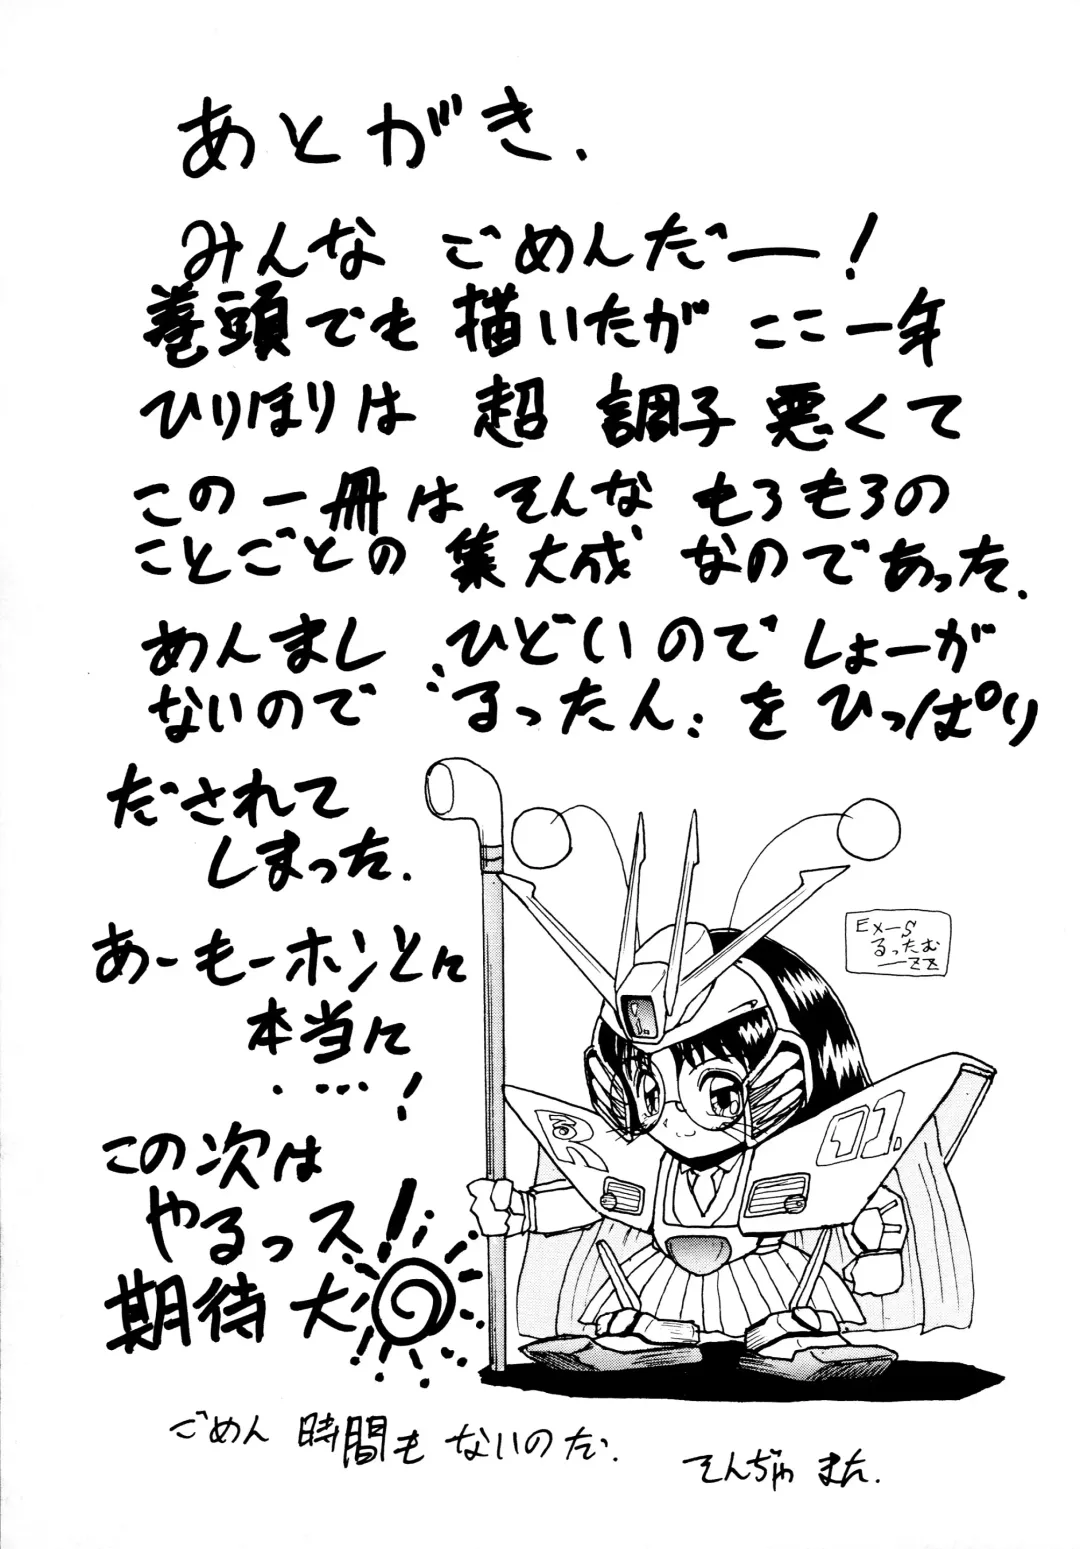 あとがき.
みんな ごめんだー!
巻頭でも 描いたが ここ一年
ひりほりは 超 調子悪くて
この一冊は そんな もろもろの
ことごとの 集大成 なのであった.
めんまし ひどいので しょーが
ないので "るったん" を ひっぱり
だされて
しまった.
あーもーホンとに
本当に
・・・・・!
この次は
やるっス!
期待大
EX-S
るったむ
ーZZ
01.
ごめん 時間も ないのだ.
そんぢゃ また.